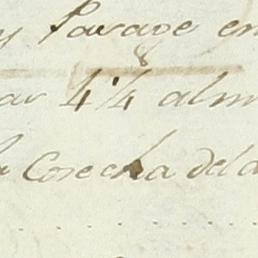 y Parage en
8
ar 4 1/4 alm
la Cosecha del a